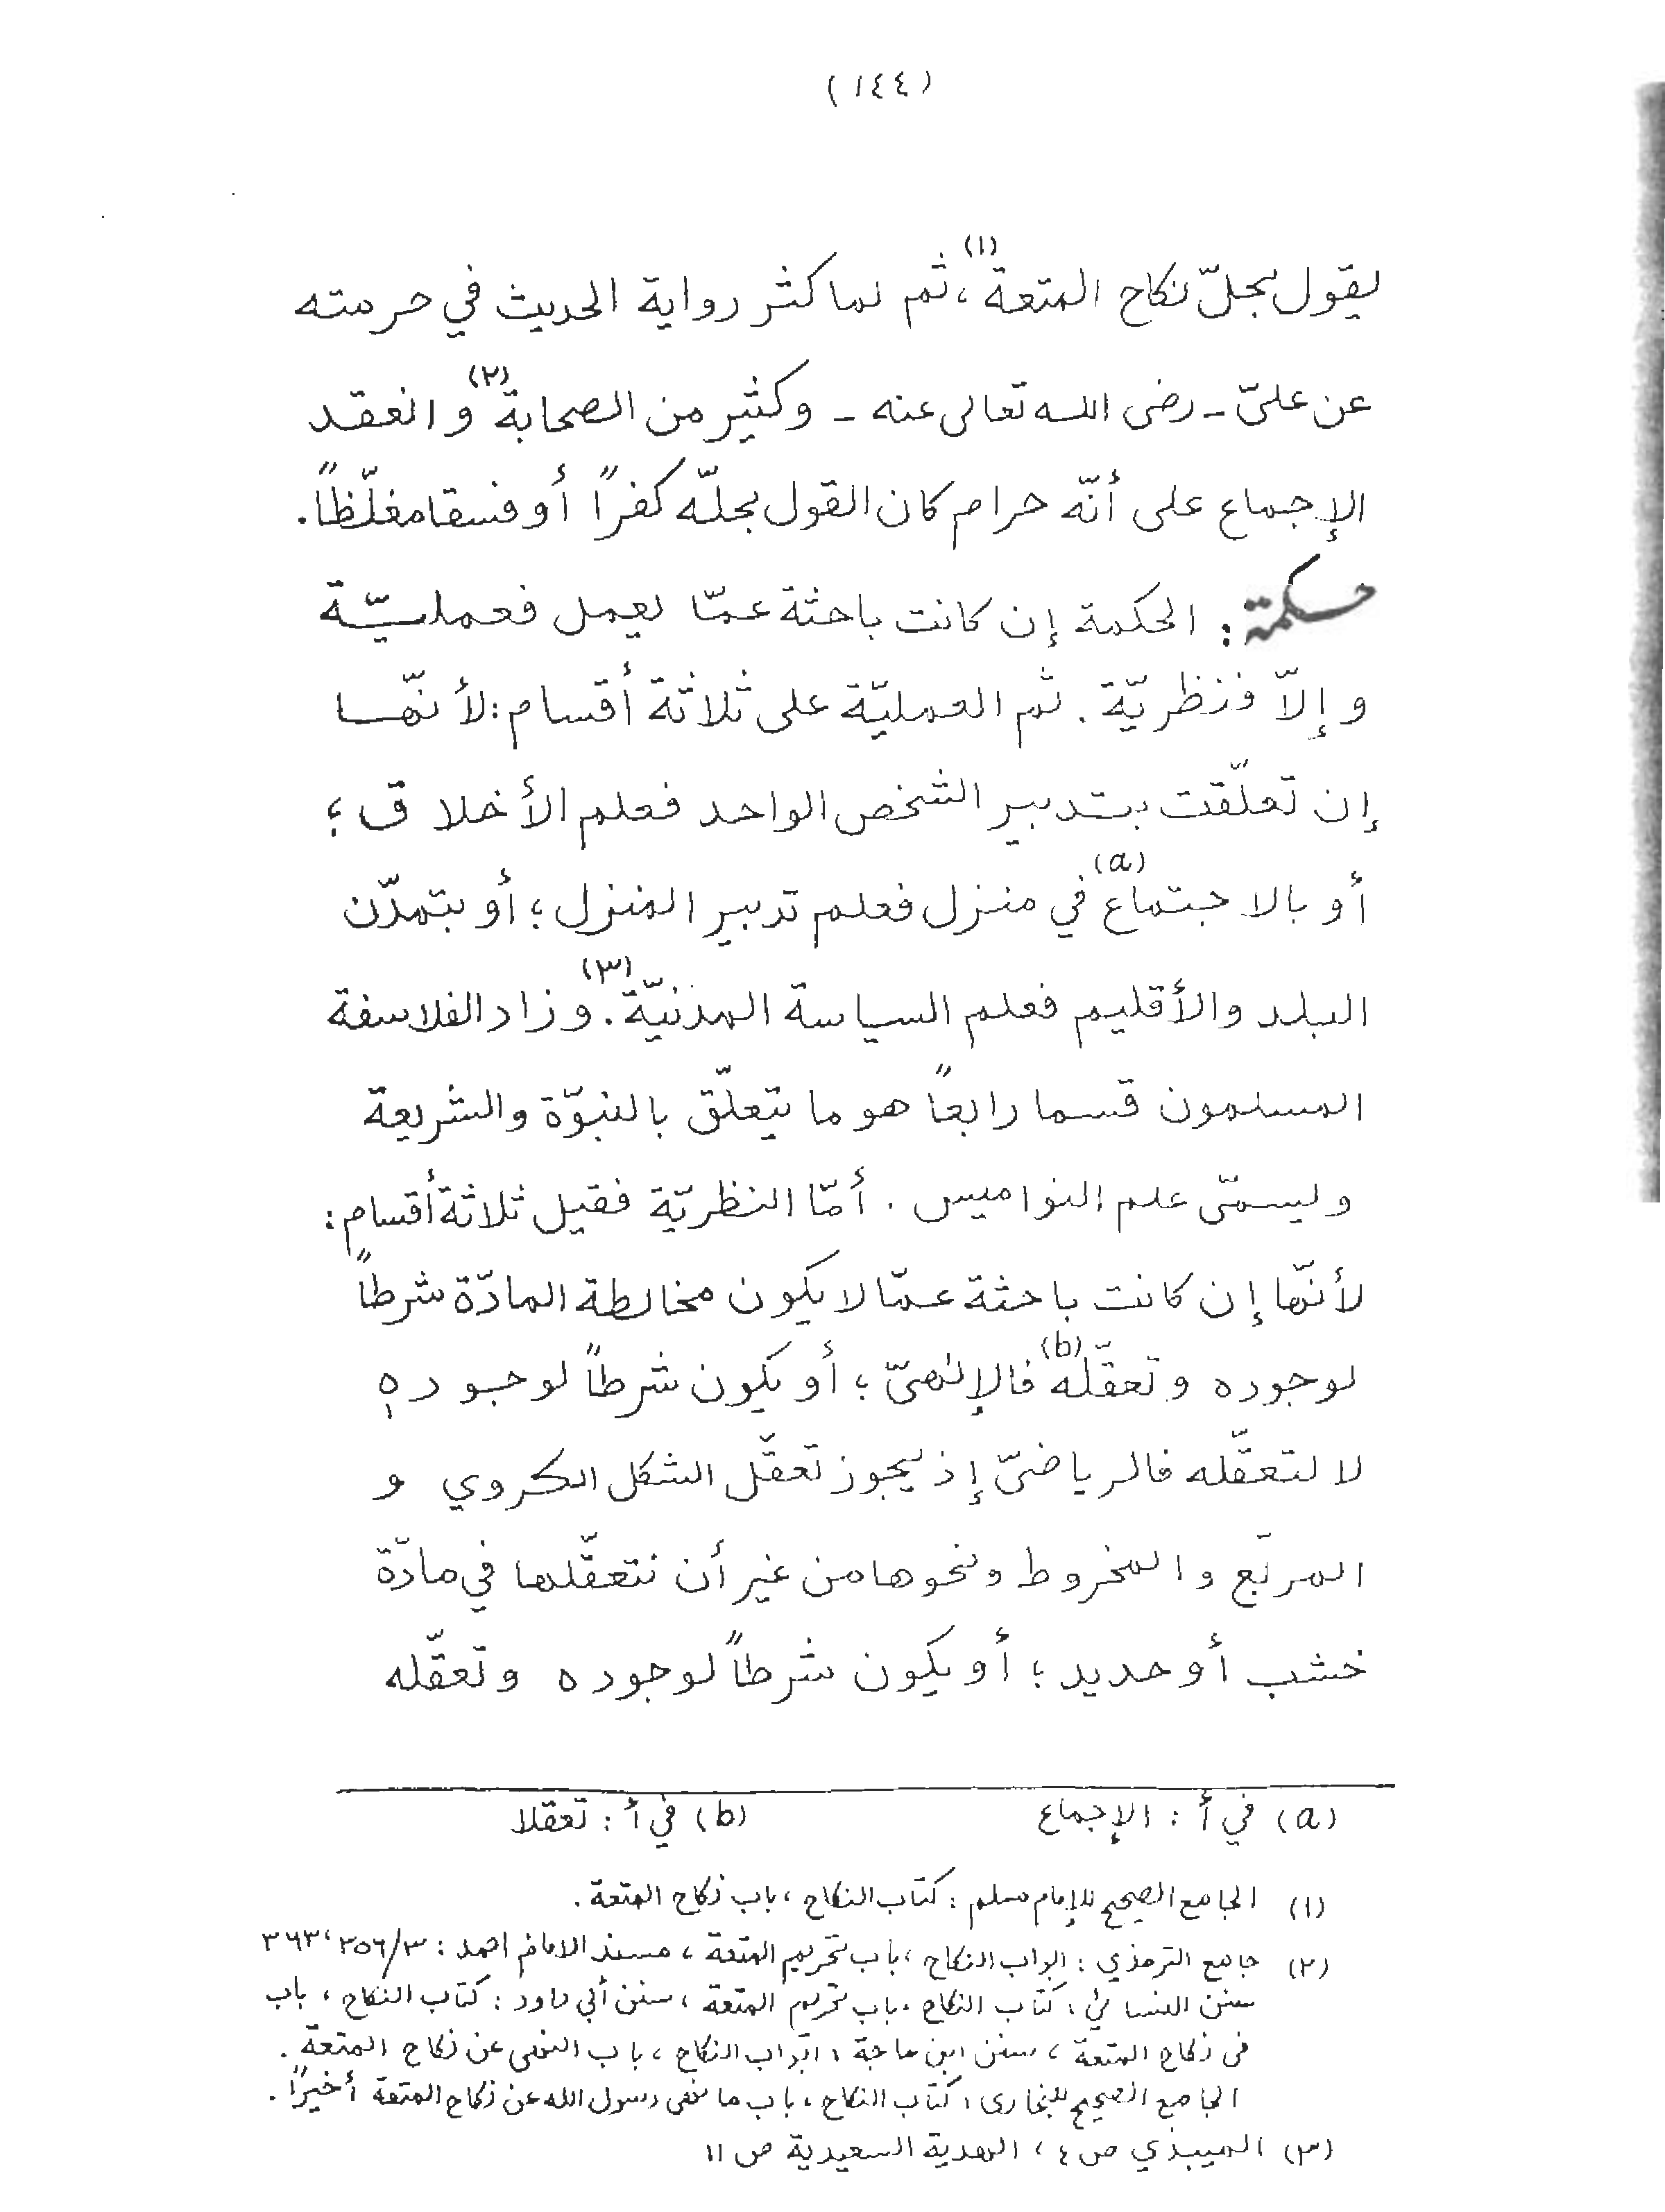 (١٤٤)
يقول بحلّ نكاح المتعة(١)، ثم لما كثر رواية الحديث في حرمته
عن عليّ - رضى الله تعالى عنه - وكثير من الصحابة(٢) وانعقد
الإجماع على أنّه حرام كان القول بحلّه كفراً أو فسقا مغلّظاً.
حكمة: الحكمة إن كانت باحثة عمّا يعمل فعمليّة
وإلاّ فنظريّة. ثم العمليّة على ثلاثة أقسام: لأنّها
إن تعلّقت بتدبير الشخص الواحد فعلم الأخلاق؛
أو بالاجتماع(a) في منزل فعلم تدبير المنزل؛ أو بتمدّن
البلد والأقليم فعلم السياسة المدنيّة(٣). وزاد الفلاسفة
المسلمون قسما رابعاً هو ما يتعلّق بالنبوّة والشريعة
ويسمّى علم النواميس. أمّا النظريّة فقيل ثلاثة أقسام:
لأنّها إن كانت باحثة عمّا لا يكون مخالطة المادّة شرطاً
لوجوده وتعقّله(b) فالإلٰهيّ؛ أو يكون شرطاً لوجوده
لا لتعقّله فالرياضىّ إذ يجوز تعقّل الشكل الكروي و
المربّع والمخروط ونحوها من غير أن نتعقّلها في مادّة
خشب أو حديد؛ أو يكون شرطاً لوجوده وتعقّله
(a) في أ: الإجماع (b) في أ: تعقلا
(١) الجامع الصحيح للإمام مسلم: كتاب النكاح، باب نكاح المتعة.
(٢) جامع الترمذي: ابواب النكاح، باب تحريم المتعة، مسند الامام احمد: ٣/٣٥٦، ٣٦٣
سنن النسائي: كتاب النكاح، باب تحريم المتعة، سنن أبي داود: كتاب النكاح، باب
فى نكاح المتعة، سنن ابن ماجة، ابواب النكاح، باب النهى عن نكاح المتعة.
الجامع الصحيح للبخارى: كتاب النكاح، باب ما نهى رسول الله عن نكاح المتعة أخيراً.
(٣) الميبذي ص ٤، الهدية السعيدية ص ١١